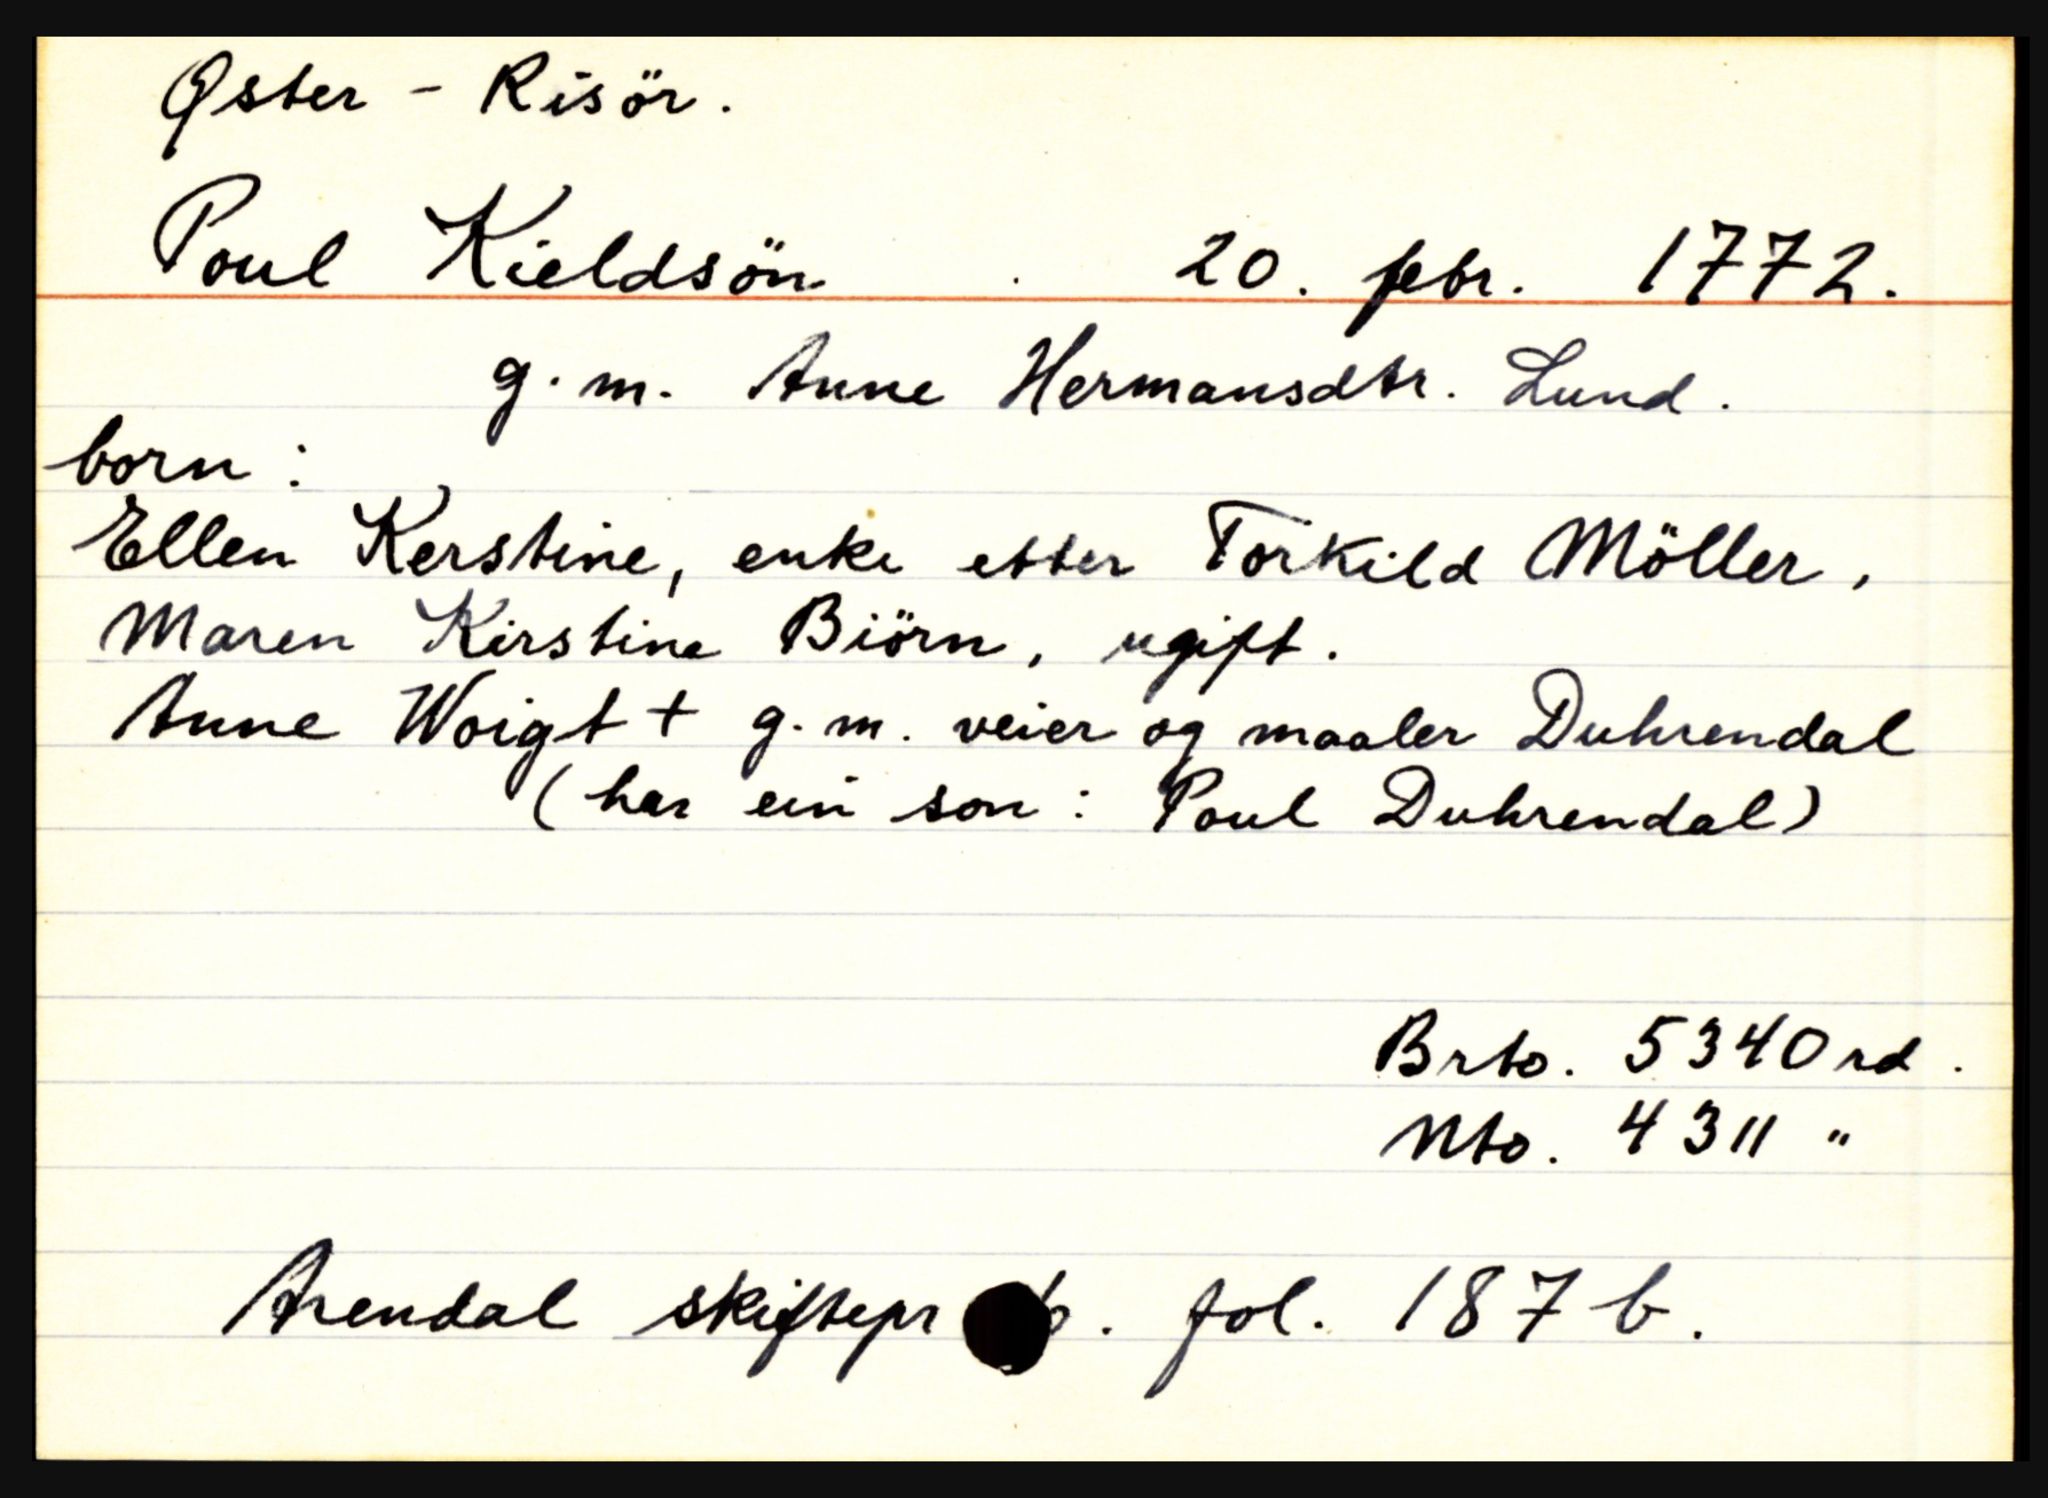 Øster - Risör.
Poul Kieldsön. 20. febr. 1772.
g. m. Anne Hermansdtr. Lund.
born:
Ellen Kerstine, enke etter Torkild Möller,
Maren Kirstine Biörn, ugift.
Anne Woigt + g. m. veier og maaler Duhrendal
(har ein son: Poul Duhrendal)
Brto. 5340 rd.
Nto. 4311 "
Arendal skiftepr 6. fol. 187 b.